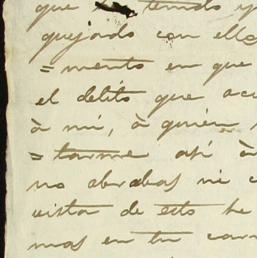 que tenido y
quejado con ello
= mento en que
el delito que acu
à mi, à quién
= tarme asi à
no alrabas ni c
vista de esto he
mos en tu carr